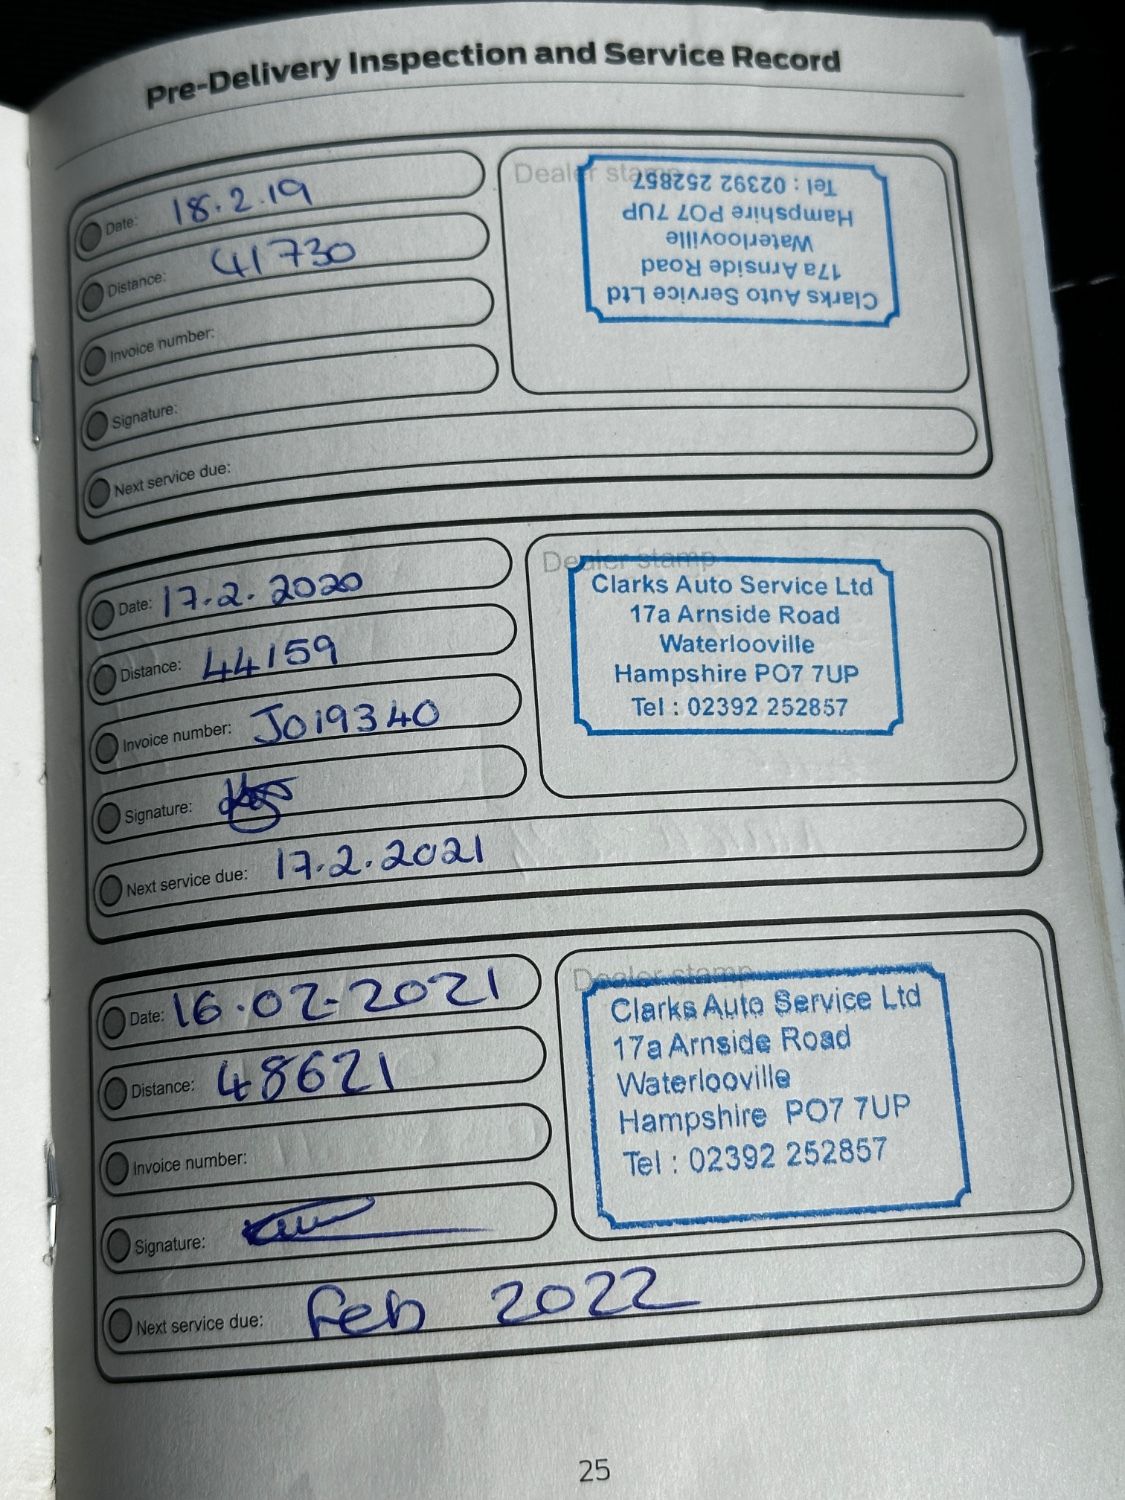 Pre-Delivery Inspection and Service Record
Date: 18.2.19
Distance: 41730
Invoice number:
Signature:
Next service due:
Dealer stamp
Clarks Auto Service Ltd
17a Arnside Road
Waterlooville
Hampshire PO7 7UP
Tel : 02392 252857
Date: 17.2.2020
Distance: 44159
Invoice number: J019340
Signature:
Next service due: 17.2.2021
Dealer stamp
Clarks Auto Service Ltd
17a Arnside Road
Waterlooville
Hampshire PO7 7UP
Tel : 02392 252857
Date: 16.02.2021
Distance: 48621
Invoice number:
Signature:
Next service due: Feb 2022
Dealer stamp
Clarks Auto Service Ltd
17a Arnside Road
Waterlooville
Hampshire PO7 7UP
Tel : 02392 252857
25